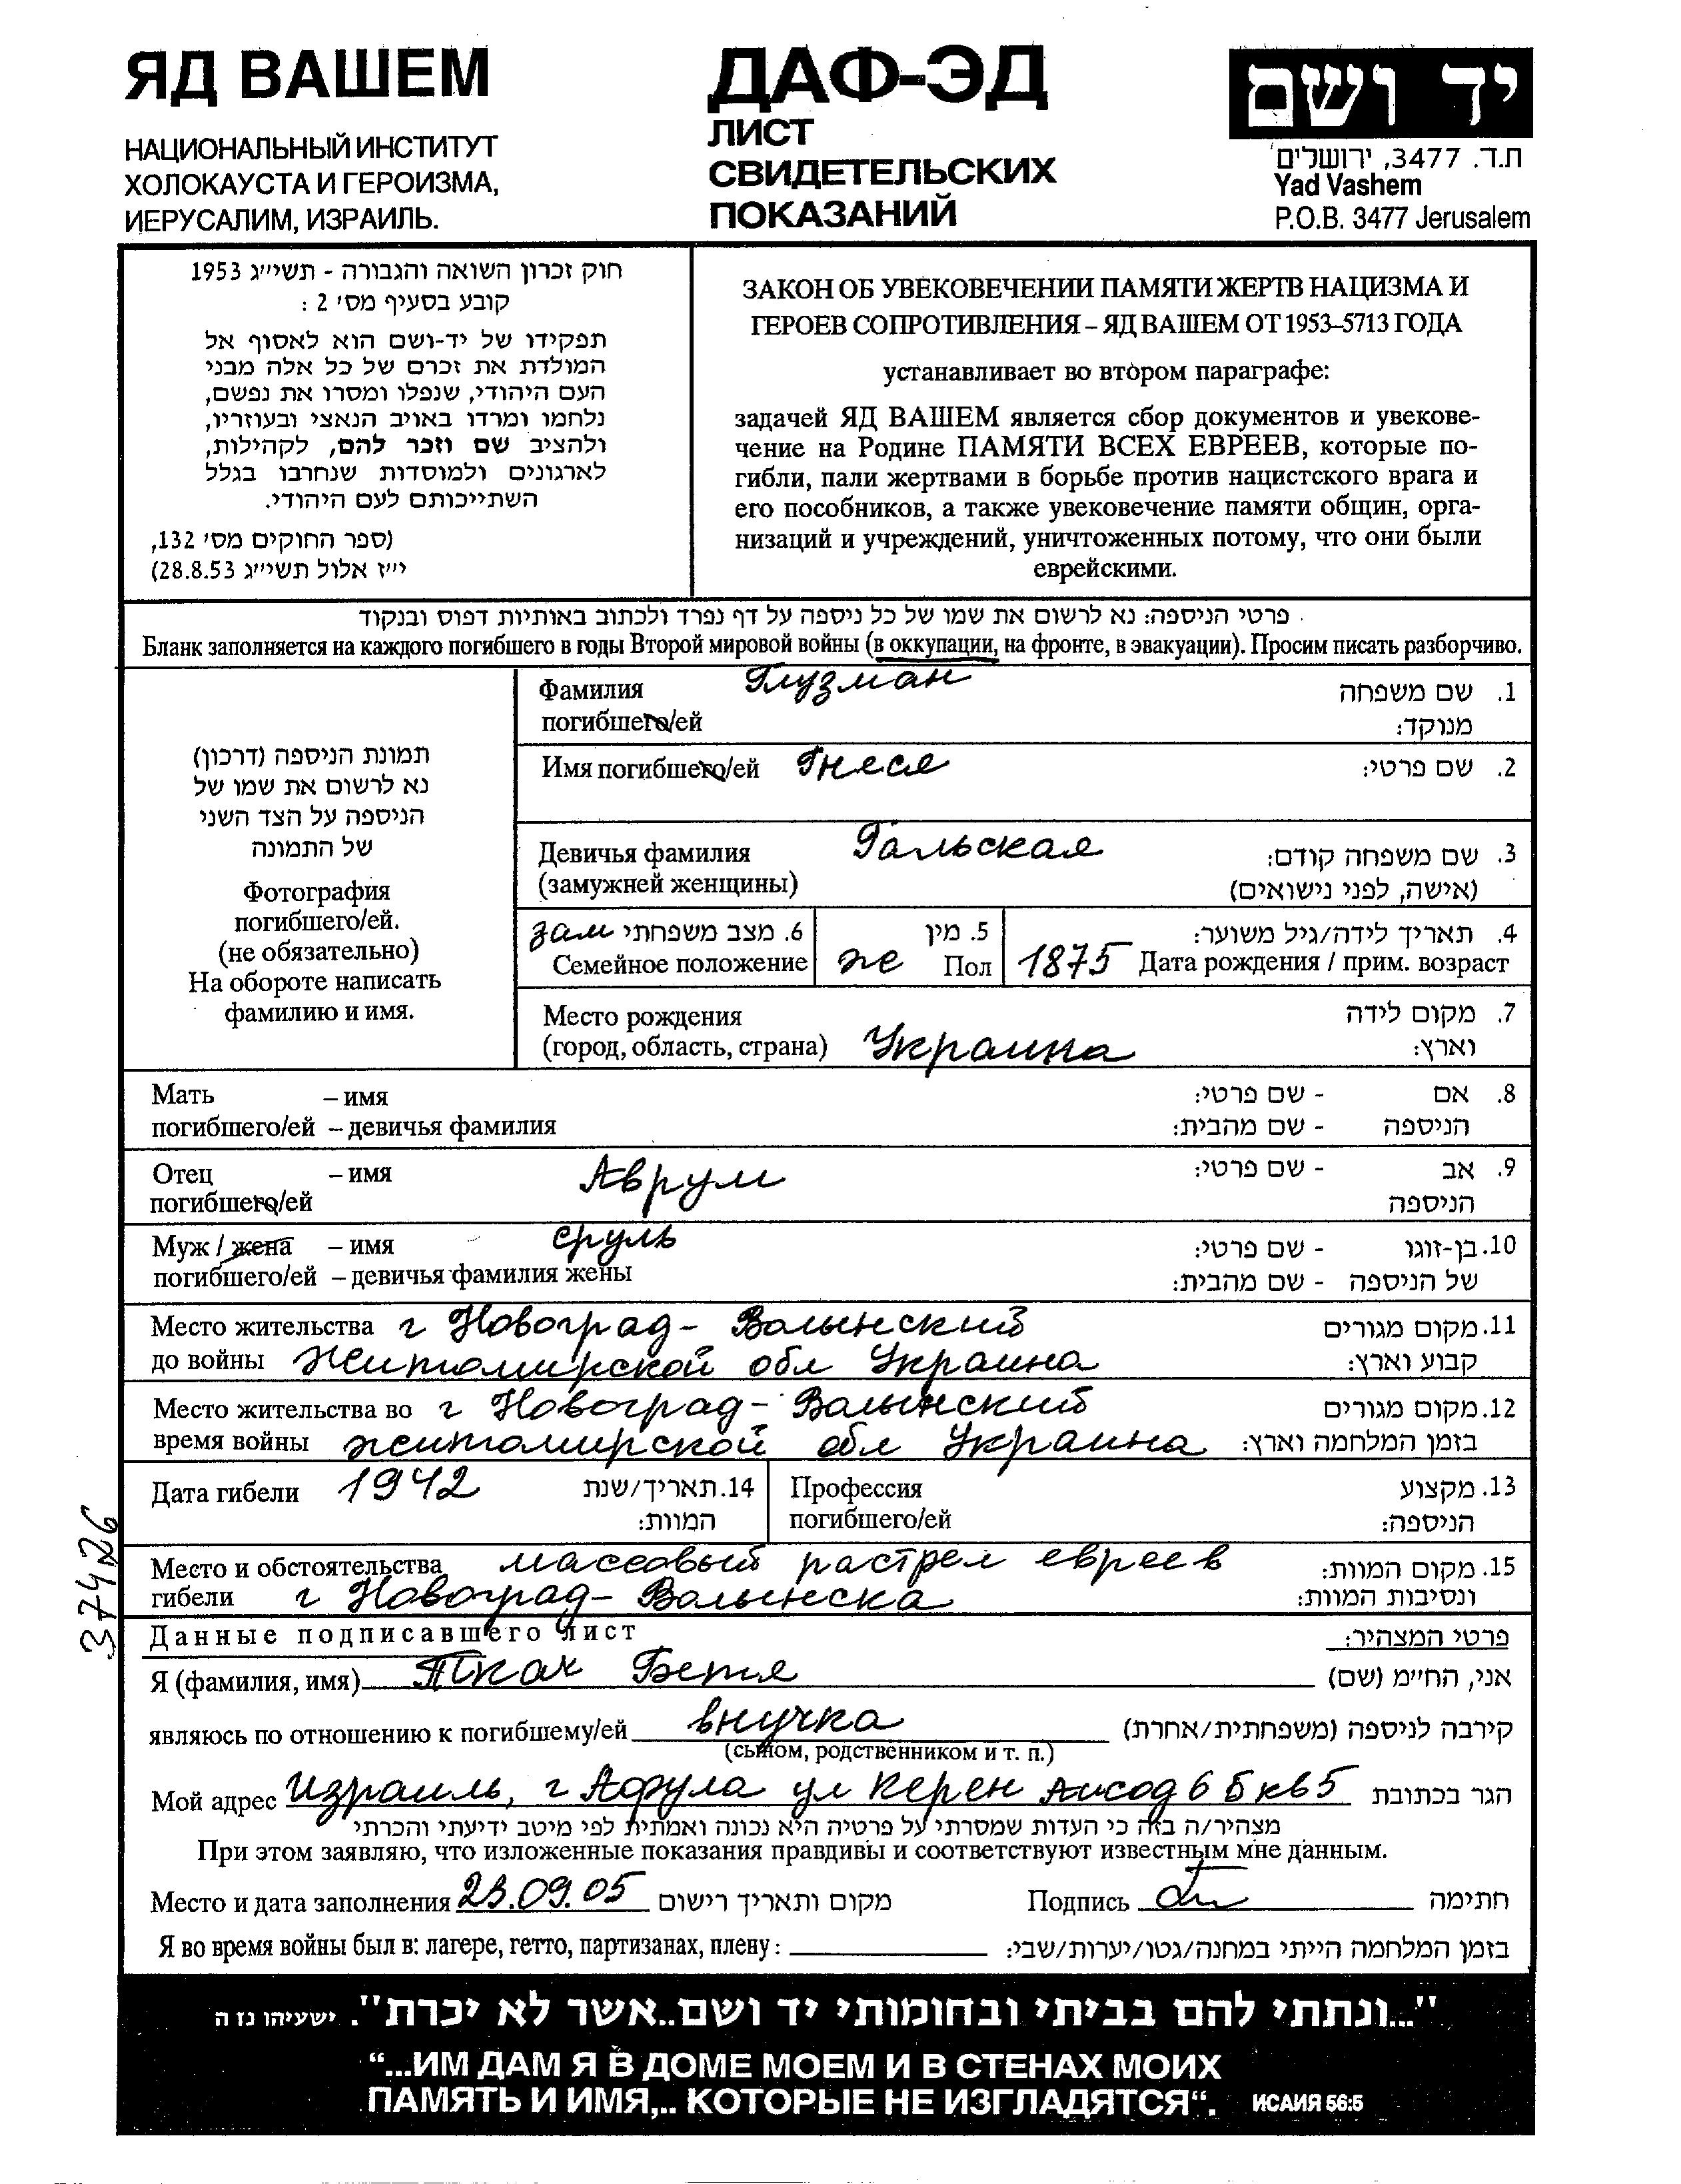 ЯД ВАШЕМ
НАЦИОНАЛЬНЫЙ ИНСТИТУТ
ХОЛОКАУСТА И ГЕРОИЗМА,
ИЕРУСАЛИМ, ИЗРАИЛЬ.
ДАФ-ЭД
ЛИСТ
СВИДЕТЕЛЬСКИХ
ПОКАЗАНИЙ
יד ושם
ת.ד. 3477, ירושלים
Yad Vashem
P.O.B. 3477 Jerusalem
חוק זכרון השואה והגבורה - תשי״ג 1953
קובע בסעיף מס׳ 2 :
תפקידו של יד-ושם הוא לאסוף אל
המולדת את זכרם של כל אלה מבני
העם היהודי, שנפלו ומסרו את נפשם,
נלחמו ומרדו באויב הנאצי ובעוזריו,
ולהציב שם וזכר להם, לקהילות,
לארגונים ולמוסדות שנחרבו בגלל
השתייכותם לעם היהודי.
(ספר החוקים מס׳ 132,
י״ז אלול תשי״ג 28.8.53)
ЗАКОН ОБ УВЕКОВЕЧЕНИИ ПАМЯТИ ЖЕРТВ НАЦИЗМА И
ГЕРОЕВ СОПРОТИВЛЕНИЯ – ЯД ВАШЕМ ОТ 1953–5713 ГОДА
устанавливает во втором параграфе:
задачей ЯД ВАШЕМ является сбор документов и увекове-
чение на Родине ПАМЯТИ ВСЕХ ЕВРЕЕВ, которые по-
гибли, пали жертвами в борьбе против нацистского врага и
его пособников, а также увековечение памяти общин, орга-
низаций и учреждений, уничтоженных потому, что они были
еврейскими.
פרטי הניספה: נא לרשום את שמו של כל ניספה על דף נפרד ולכתוב באותיות דפוס ובנקוד
Бланк заполняется на каждого погибшего в годы Второй мировой войны (в оккупации, на фронте, в эвакуации). Просим писать разборчиво.
תמונת הניספה (דרכון)
נא לרשום את שמו של
הניספה על הצד השני
של התמונה
Фотография
погибшего/ей.
(не обязательно)
На обороте написать
фамилию и имя.
Фамилия Глузман 1. שם משפחה
погибшего/ей מנוקד:
Имя погибшего/ей Гнеся 2. שם פרטי:
Девичья фамилия Гальская 3. שם משפחה קודם:
(замужней женщины) (אישה, לפני נישואים)
зам 6. מצב משפחתי 5. מין 4. תאריך לידה/גיל משוער:
Семейное положение же Пол 1875 Дата рождения / прим. возраст
Место рождения 7. מקום לידה
(город, область, страна) Украина וארץ:
Мать – имя 8. אם - שם פרטי:
погибшего/ей – девичья фамилия הניספה - שם מהבית:
Отец – имя Аврум 9. אב - שם פרטי:
погибшего/ей הניספה
Муж / жена – имя Сруль 10. בן-זוגו - שם פרטי:
погибшего/ей – девичья фамилия жены של הניספה - שם מהבית:
Место жительства г Новоград-Волынский 11. מקום מגורים
до войны Житомирской обл Украина קבוע וארץ:
Место жительства во г Новоград-Волынский 12. מקום מגורים
время войны житомирской обл Украина בזמן המלחמה וארץ:
Дата гибели 1942 14. תאריך/שנת Профессия 13. מקצוע
המוות: погибшего/ей הניספה:
Место и обстоятельства массовый растрел евреев 15. מקום המוות:
гибели г Новоград-Волынска ונסיבות המוות:
37426
Данные подписавшего лист פרטי המצהיר:
Я (фамилия, имя) Ткач Бетя אני, הח״מ (שם)
являюсь по отношению к погибшему/ей внучка קירבה לניספה (משפחתית/אחרת)
(сыном, родственником и т. п.)
Мой адрес Израиль, г Афула ул Керен Аисод 6 Б кв 5 הגר בכתובת
מצהיר/ה בזה כי העדות שמסרתי על פרטיה היא נכונה ואמתית לפי מיטב ידיעתי והכרתי
При этом заявляю, что изложенные показания правдивы и соответствуют известным мне данным.
Место и дата заполнения 23.09.05 מקום ותאריך רישום Подпись חתימה
Я во время войны был в: лагере, гетто, партизанах, плену : בזמן המלחמה הייתי במחנה/גטו/יערות/שבי:
"...ונתתי להם בביתי ובחומותי יד ושם..אשר לא יכרת". ישעיהו נז ה
“...ИМ ДАМ Я В ДОМЕ МОЕМ И В СТЕНАХ МОИХ
ПАМЯТЬ И ИМЯ,.. КОТОРЫЕ НЕ ИЗГЛАДЯТСЯ“. ИСАИЯ 56:5